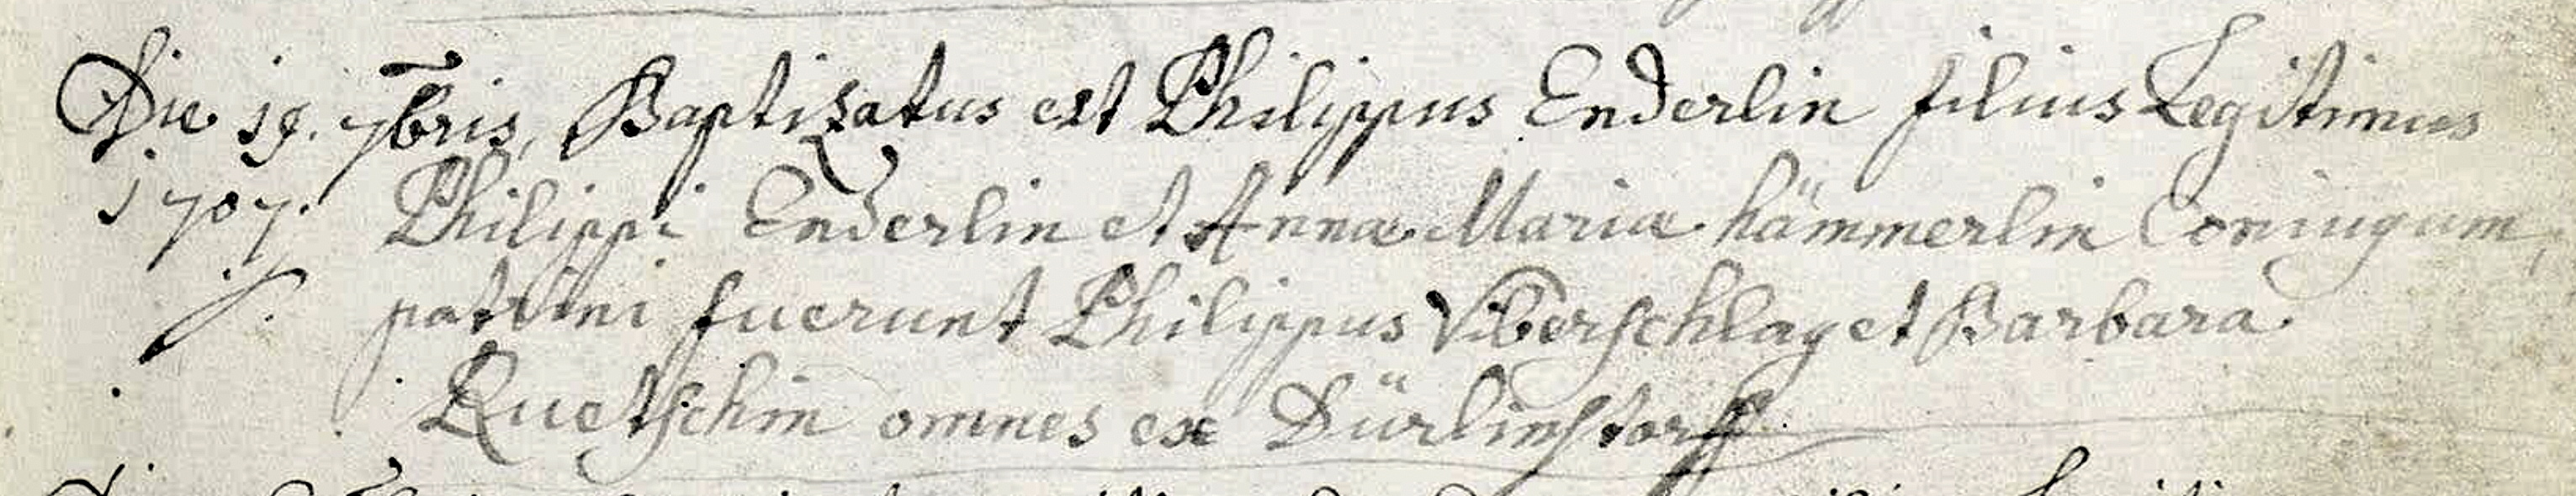 Die 19. 7bris, Baptizatus est Philippus Enderlin filius Legitimus
1707. Philippi Enderlin et Annæ Mariæ hämmerlin Coniugum,
patrini fuerunt Philippus Viberschlag et Barbara
Ruetschin omnes ex Dürlinstorff.